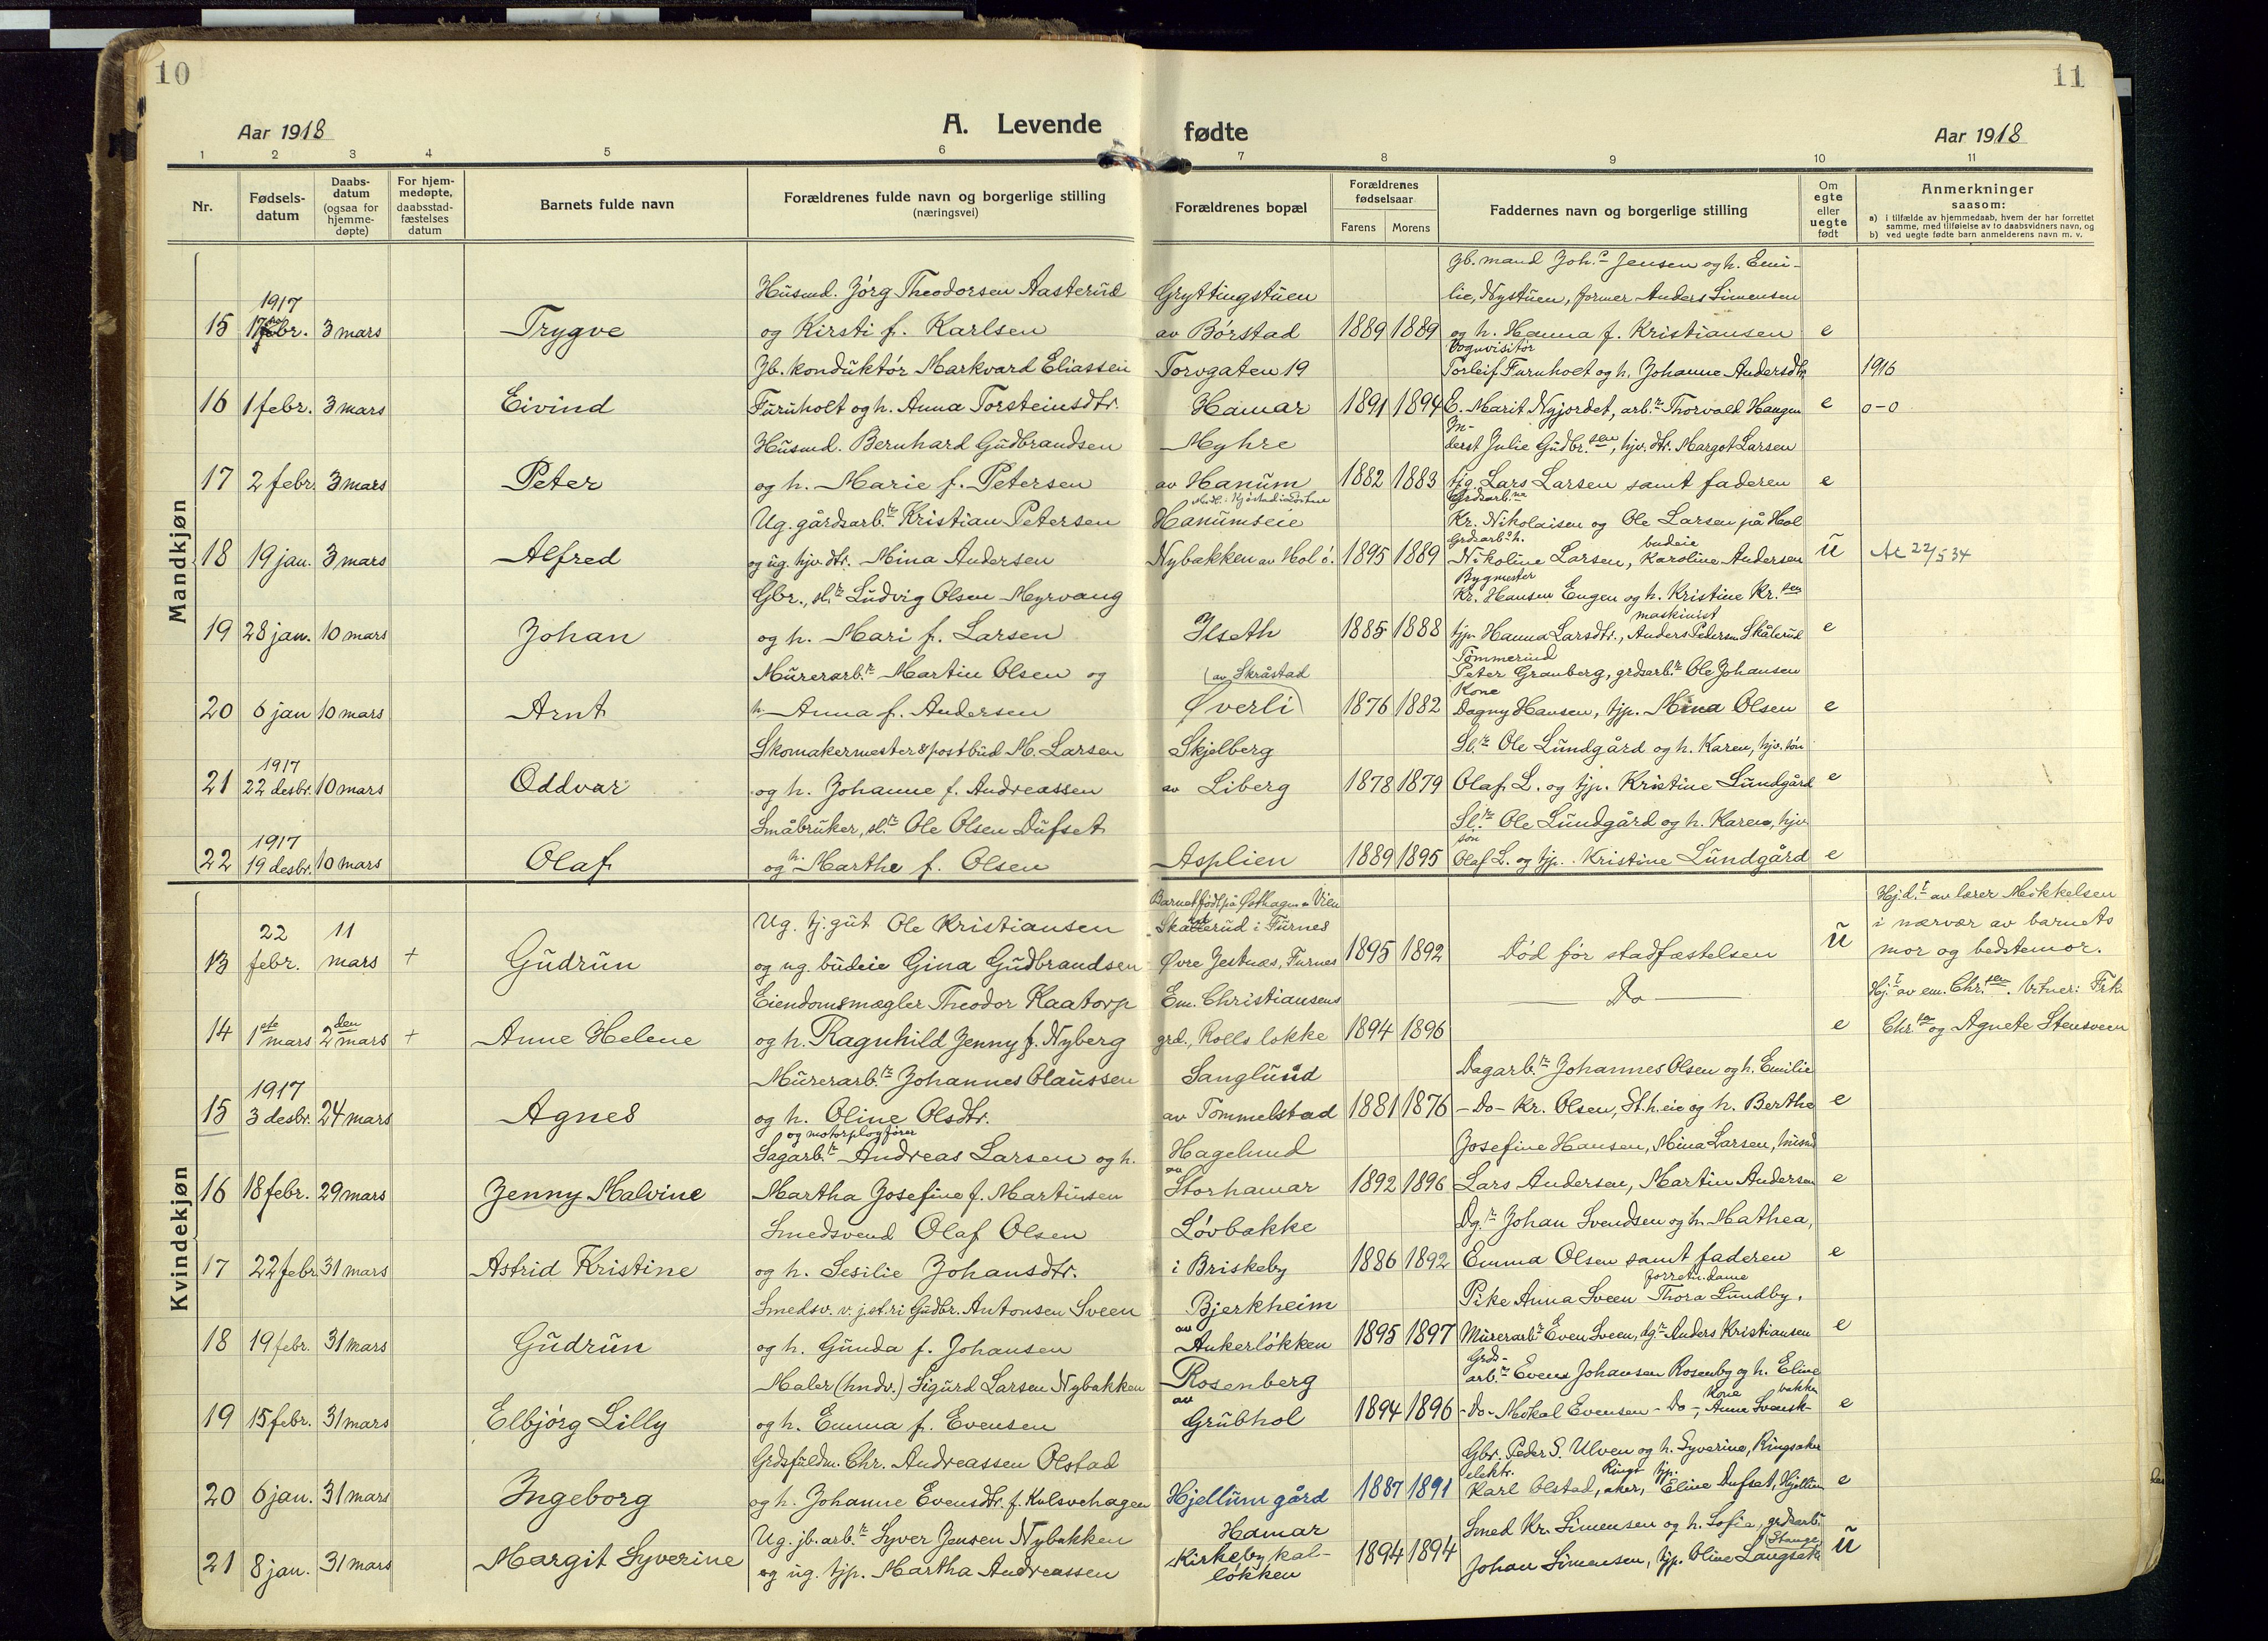 10
11
Aar 1918
A. Levende fødte
Aar 1918
1 2 3 4 5 6 7 8 9 10 11
Nr.
Fødsels-
datum
Daabs-
datum
(ogsaa for
hjemme-
døpte)
For hjem-
medøpte,
daabsstad-
fæstelses
datum
Barnets fulde navn
Forældrenes fulde navn og borgerlige stilling
(næringsvei)
Forældrenes bopæl
Forældrenes
fødselsaar
Farens Morens
Faddernes navn og borgerlige stilling
Om
egte
eller
uegte
født
Anmerkninger
saasom:
a) i tilfælde av hjemmedaab, hvem der har forrettet
samme, med tilføielse av to daabsvidners navn, og
b) ved uegte fødte barn anmelderens navn m. v.
Mandkjøn
Jb. mand Joh.s Jensen og h. Emi-
1917 Husmd. Jörg Theodorsen Aasterud Gryttingstuen lie, Nystuen, former Anders Simensen
15 3 mars Trygve og Kirsti f. Karlsen av Börstad 1889 1889 og h. Hanna f. Kristiansen e
Jb. konduktör Markvard Eliassen Torvgaten 19 Vognvisitör Torleif Furuholt og h. Johanne Andersdtr. 1916
16 1 febr. 3 mars Eivind Furuholt og h. Anna Torsteinsdtr. Hamar 1891 1894 E. Marit Nyjordet, arb.r Thorvald Haugen e 0-0
Husmd. Bernhard Gudbrandsen Myhre In-
derst Julie Gudbr.sen, hjv. dtr. Margot Larsen
17 2 febr. 3 mars Peter og h. Marie f. Petersen av Hanum 1882 1883 tjg. Lars Larsen samt faderen e
Ug. gårdsarb.r Kristian Petersen Hanumseie Grdsarb.ne Kr. Nikolaisen og Ole Larsen på Hol
18 19 jan. 3 mars Alfred og ug. hjv. dtr. Mina Andersen Nybakken av Hol ö. 1895 1889 Grdsarb.s h. Nikoline Larsen, budeie Karoline Andersen u 22/5 34
Gbr., sl.r Ludvig Olsen Myrvang Bygmester Kr. Hansen Engen og h. Kristine Kr.sen
19 28 jan. 10 mars Johan og h. Mari f. Larsen Ilseth 1885 1888 tjp. Hanna Larsdtr., maskinist Anders Pedersen Skålerud e
Murerarb.r Martin Olsen og (av Skråstad Tömmermd Peter Granberg, grdsarb.r Ole Johansen
20 6 jan 10 mars Arnt h. Anna f. Andersen Øverli 1876 1882 Kone Dagny Hansen, tjp. Mina Olsen e
Skomakermester & postbud M. Larsen Skjelberg Sl.r Ole Lundgård og h. Karen, hjv. sön
1917
21 22 desbr. 10 mars Oddvar og h. Johanne f. Andreassen av Liberg 1878 1879 Olaf L. og tjp. Kristine Lundgård e
Småbruker, sl.r Ole Olsen Dufset Sl.r Ole Lundgård og h. Karen, hjv.
1917
22 19 desbr. 10 mars Olaf og h. Marthe f. Olsen Asplien 1889 1895 sön Olaf L. og tjp. Kristine Lundgård e
Kvindekjøn
Barnet födt på Østhagen Hj.d.t av lærer Mikkelsen
22 11 Ug. tj. gut Ole Kristiansen Skatterud i Furnes i nærvær av barnets
13 febr. mars + Gudrun og ug. budeie Gina Gudbrandsen Øvre Jestnæs, Furnes 1895 1892 Död för stadfæstelsen u mor og bedstemor.
Eiendomsmægler Theodor Kaatorp Em. Christiansens Do Hj.t av em. Chr.sen. Vitner: Frk.
14 1ste mars 2den mars + Anne Helene og h. Ragnhild Jenny f. Nyberg grd., Rolls lokke 1894 1896 e Chr.sen og Agnete Stensveen
1917 Murerarb.r Johannes Olaussen Sanglund Dagarb.r Johannes Olsen og h. Emilie
15 3 desbr. 24 mars Agnes og h. Oline Olsdtr. av Tommelstad 1881 1876 -Do- Kr. Olsen, St.h. eie og h. Berthe e
og motorplogförer
Sagarb.r Andreas Larsen og h. Hagelund Josefine Hansen, Mina Larsen, husmd
16 18 febr. 29 mars Jenny Malvine Martha Josefine f. Martinsen av Storhamar 1892 1896 Lars Andersen, Martin Andersen e
Smedsvend Olaf Olsen Lövbakke Dg.r Johan Svendsen og h. Mathea,
17 22 febr 31 mars Astrid Kristine og h. Sesilie Johansdtr. i Briskeby 1886 1892 Emma Olsen samt faderen e
Smedsv. v. j.st.ri Gudbr. Antonsen Sveen Bjerkheim Pike Anna Sveen forretn. dame Thora Lundby.
18 19 febr. 31 mars Gudrun og h. Gunda f. Johansen av Ankerlökken 1895 1897 Murerarb.r Even Sveen, dg.r Anders Kristiansen e
Maler (hndv.) Sigurd Larsen Nybakken Rosenberg Grds-
arb.r Even Johansen Rosenby og h. Eline
19 15 febr. 31 mars Elbjörg Lilly og h. Emma f. Evensen av Grubhol 1894 1896 -do- Mikal Evensen -Do-, Kone Anna Svensk-bakken e
Grdsfuldm. Chr. Andreassen Olstad Gbr. Peder S. Ulven og h. Syverine, Ringsaker
20 6 jan. 31 mars Ingeborg og h. Johanne Evensdtr. f. Kulsvehagen Hjellum gård 1887 1891 elektr. Karl Olstad, Rings aker, tjp. Eline Dufset, Hjellum e
Ug. jb. arb.r Syver Jensen Nybakken Hamar Smed Kr. Simensen og h. Sofie, grdsarb.r
21 8 jan. 31 mars Margit Syverine og ug. tjp. Martha Andreassen Kirkeby kal-
lökken 1894 1894 Johan Simensen, tjp. Oline Langseth (Stange) u